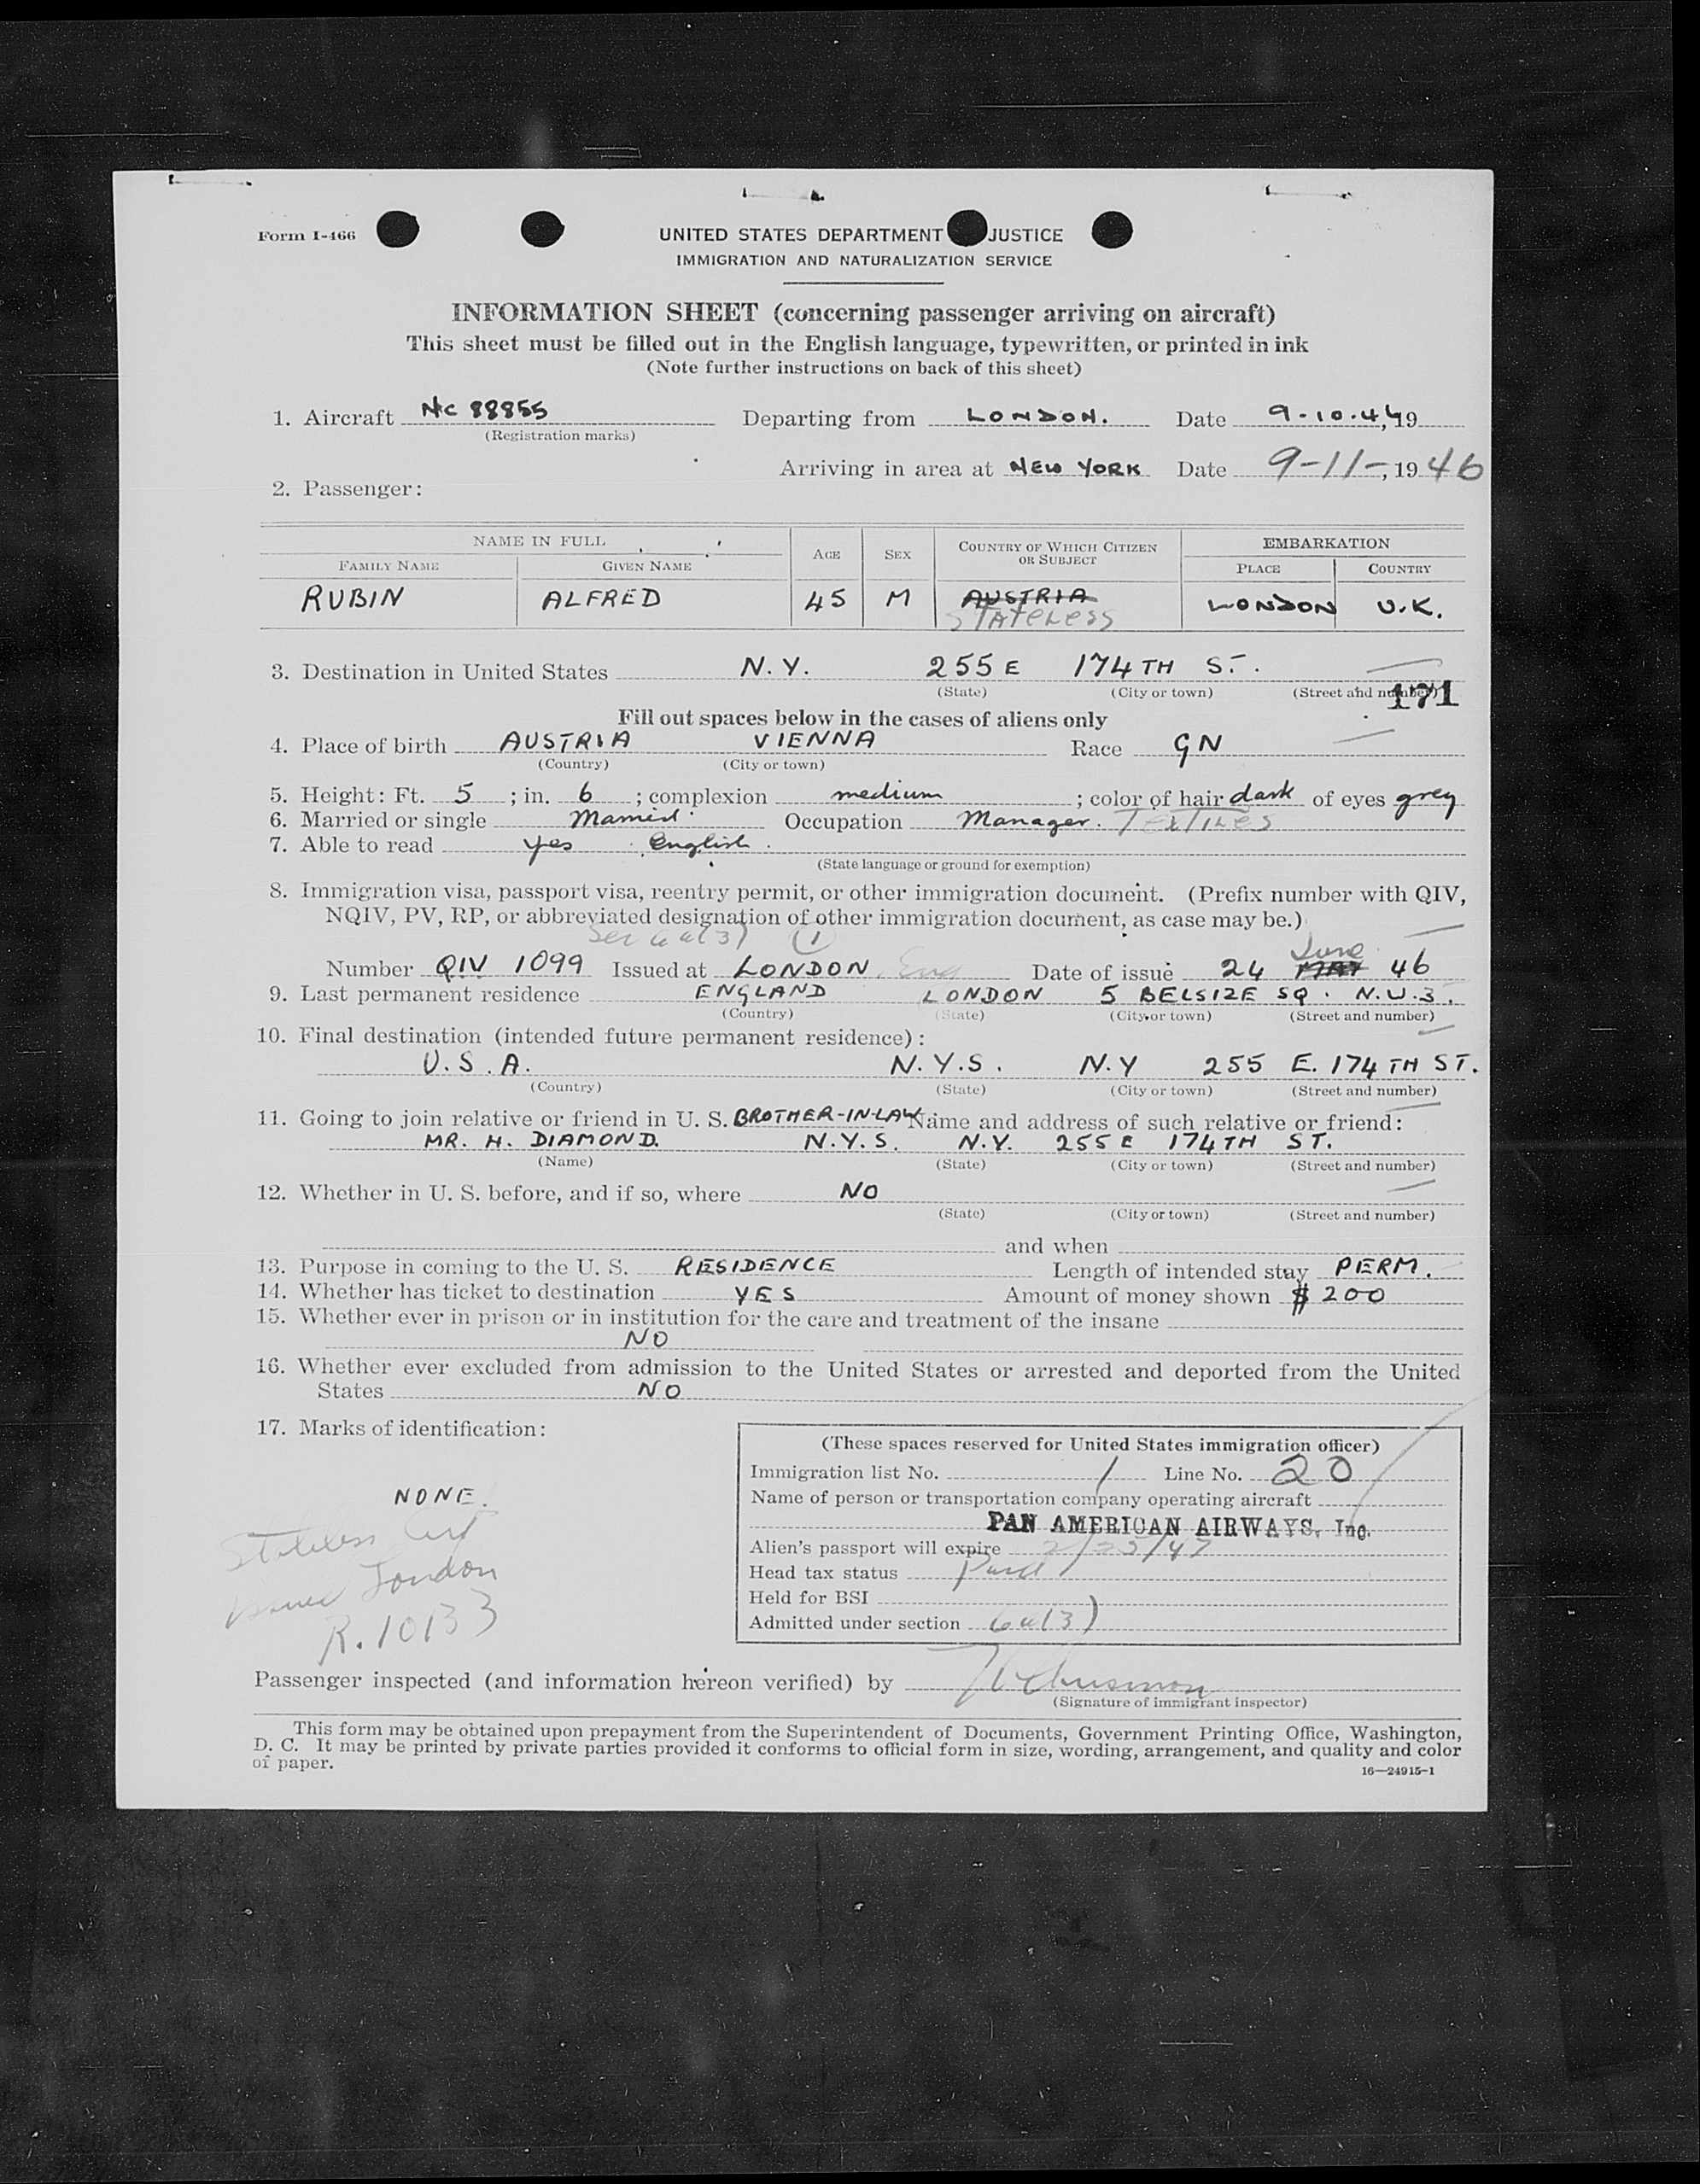 Form I-466
UNITED STATES DEPARTMENT JUSTICE
IMMIGRATION AND NATURALIZATION SERVICE
INFORMATION SHEET (concerning passenger arriving on aircraft)
This sheet must be filled out in the English language, typewritten, or printed in ink
(Note further instructions on back of this sheet)
1. Aircraft NC 88855 Departing from LONDON. Date 9-10-46, 19
(Registration marks)
Arriving in area at NEW YORK Date 9-11-, 1946
2. Passenger:
NAME IN FULL AGE SEX COUNTRY OF WHICH CITIZEN OR SUBJECT EMBARKATION
FAMILY NAME GIVEN NAME PLACE COUNTRY
RUBIN ALFRED 45 M AUSTRIA LONDON U.K.
STATELESS
3. Destination in United States N.Y. 255 E 174TH ST.
(State) (City or town) (Street and number)
171
Fill out spaces below in the cases of aliens only
4. Place of birth AUSTRIA VIENNA Race GN
(Country) (City or town)
5. Height: Ft. 5; in. 6; complexion medium; color of hair dark of eyes grey
6. Married or single Married. Occupation Manager. Textiles
7. Able to read yes English.
(State language or ground for exemption)
8. Immigration visa, passport visa, reentry permit, or other immigration document. (Prefix number with QIV,
NQIV, PV, RP, or abbreviated designation of other immigration document, as case may be.)
Sec 6a(3) (1)
June
Number QIV 1099 Issued at LONDON. Eng Date of issue 24 MAY 46
9. Last permanent residence ENGLAND LONDON 5 BELSIZE SQ. N.W.3.
(Country) (State) (City or town) (Street and number)
10. Final destination (intended future permanent residence):
U.S.A. N.Y.S. N.Y 255 E. 174TH ST.
(Country) (State) (City or town) (Street and number)
11. Going to join relative or friend in U. S. BROTHER-IN-LAW Name and address of such relative or friend:
MR. H. DIAMOND. N.Y.S. N.Y. 255 E 174TH ST.
(Name) (State) (City or town) (Street and number)
12. Whether in U. S. before, and if so, where NO
(State) (City or town) (Street and number)
and when
13. Purpose in coming to the U. S. RESIDENCE Length of intended stay PERM.
14. Whether has ticket to destination YES Amount of money shown $ 200
15. Whether ever in prison or in institution for the care and treatment of the insane
NO
16. Whether ever excluded from admission to the United States or arrested and deported from the United
States NO
17. Marks of identification:
NONE.
Stateless
London
R.10133
(These spaces reserved for United States immigration officer)
Immigration list No. 1 Line No. 20
Name of person or transportation company operating aircraft
PAN AMERICAN AIRWAYS, Inc.
Alien's passport will expire 2/25/47
Head tax status Paid
Held for BSI
Admitted under section 6a(3)
Passenger inspected (and information hereon verified) by
(Signature of immigrant inspector)
This form may be obtained upon prepayment from the Superintendent of Documents, Government Printing Office, Washington,
D. C. It may be printed by private parties provided it conforms to official form in size, wording, arrangement, and quality and color
of paper.
16—24915-1